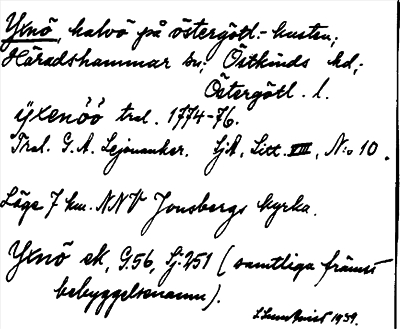 Yxnö, halvö på östergötl.-kusten;
Häradshammar sn; Östkinds hd;
Östergötl. l.
ÿxenöö trol. 1774-76.
Trol. G. A. Lejonanker. SjA, Litt. VIII, N:o 10.
Läge 7 km. NNV Jonsbergs kyrka.
Yxnö ek, G.56, Sj:251 (samtliga främst
bebyggelsenamn).
S. Lundkvist 1939.